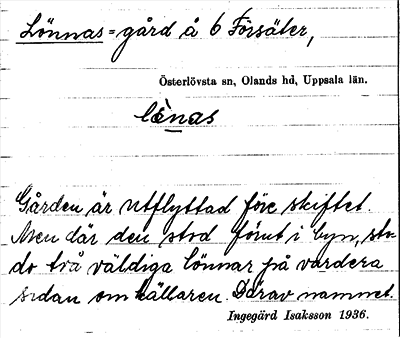 Lönnas = gård å 6 Försäter,
Österlövsta sn, Olands hd, Uppsala län.
lö̀nas
Gården är utflyttad före skiftet.
Men där den stod förut i byn, sto-
do två väldiga lönnar på vardera
sidan om källaren. Därav namnet.
Ingegärd Isaksson 1936.